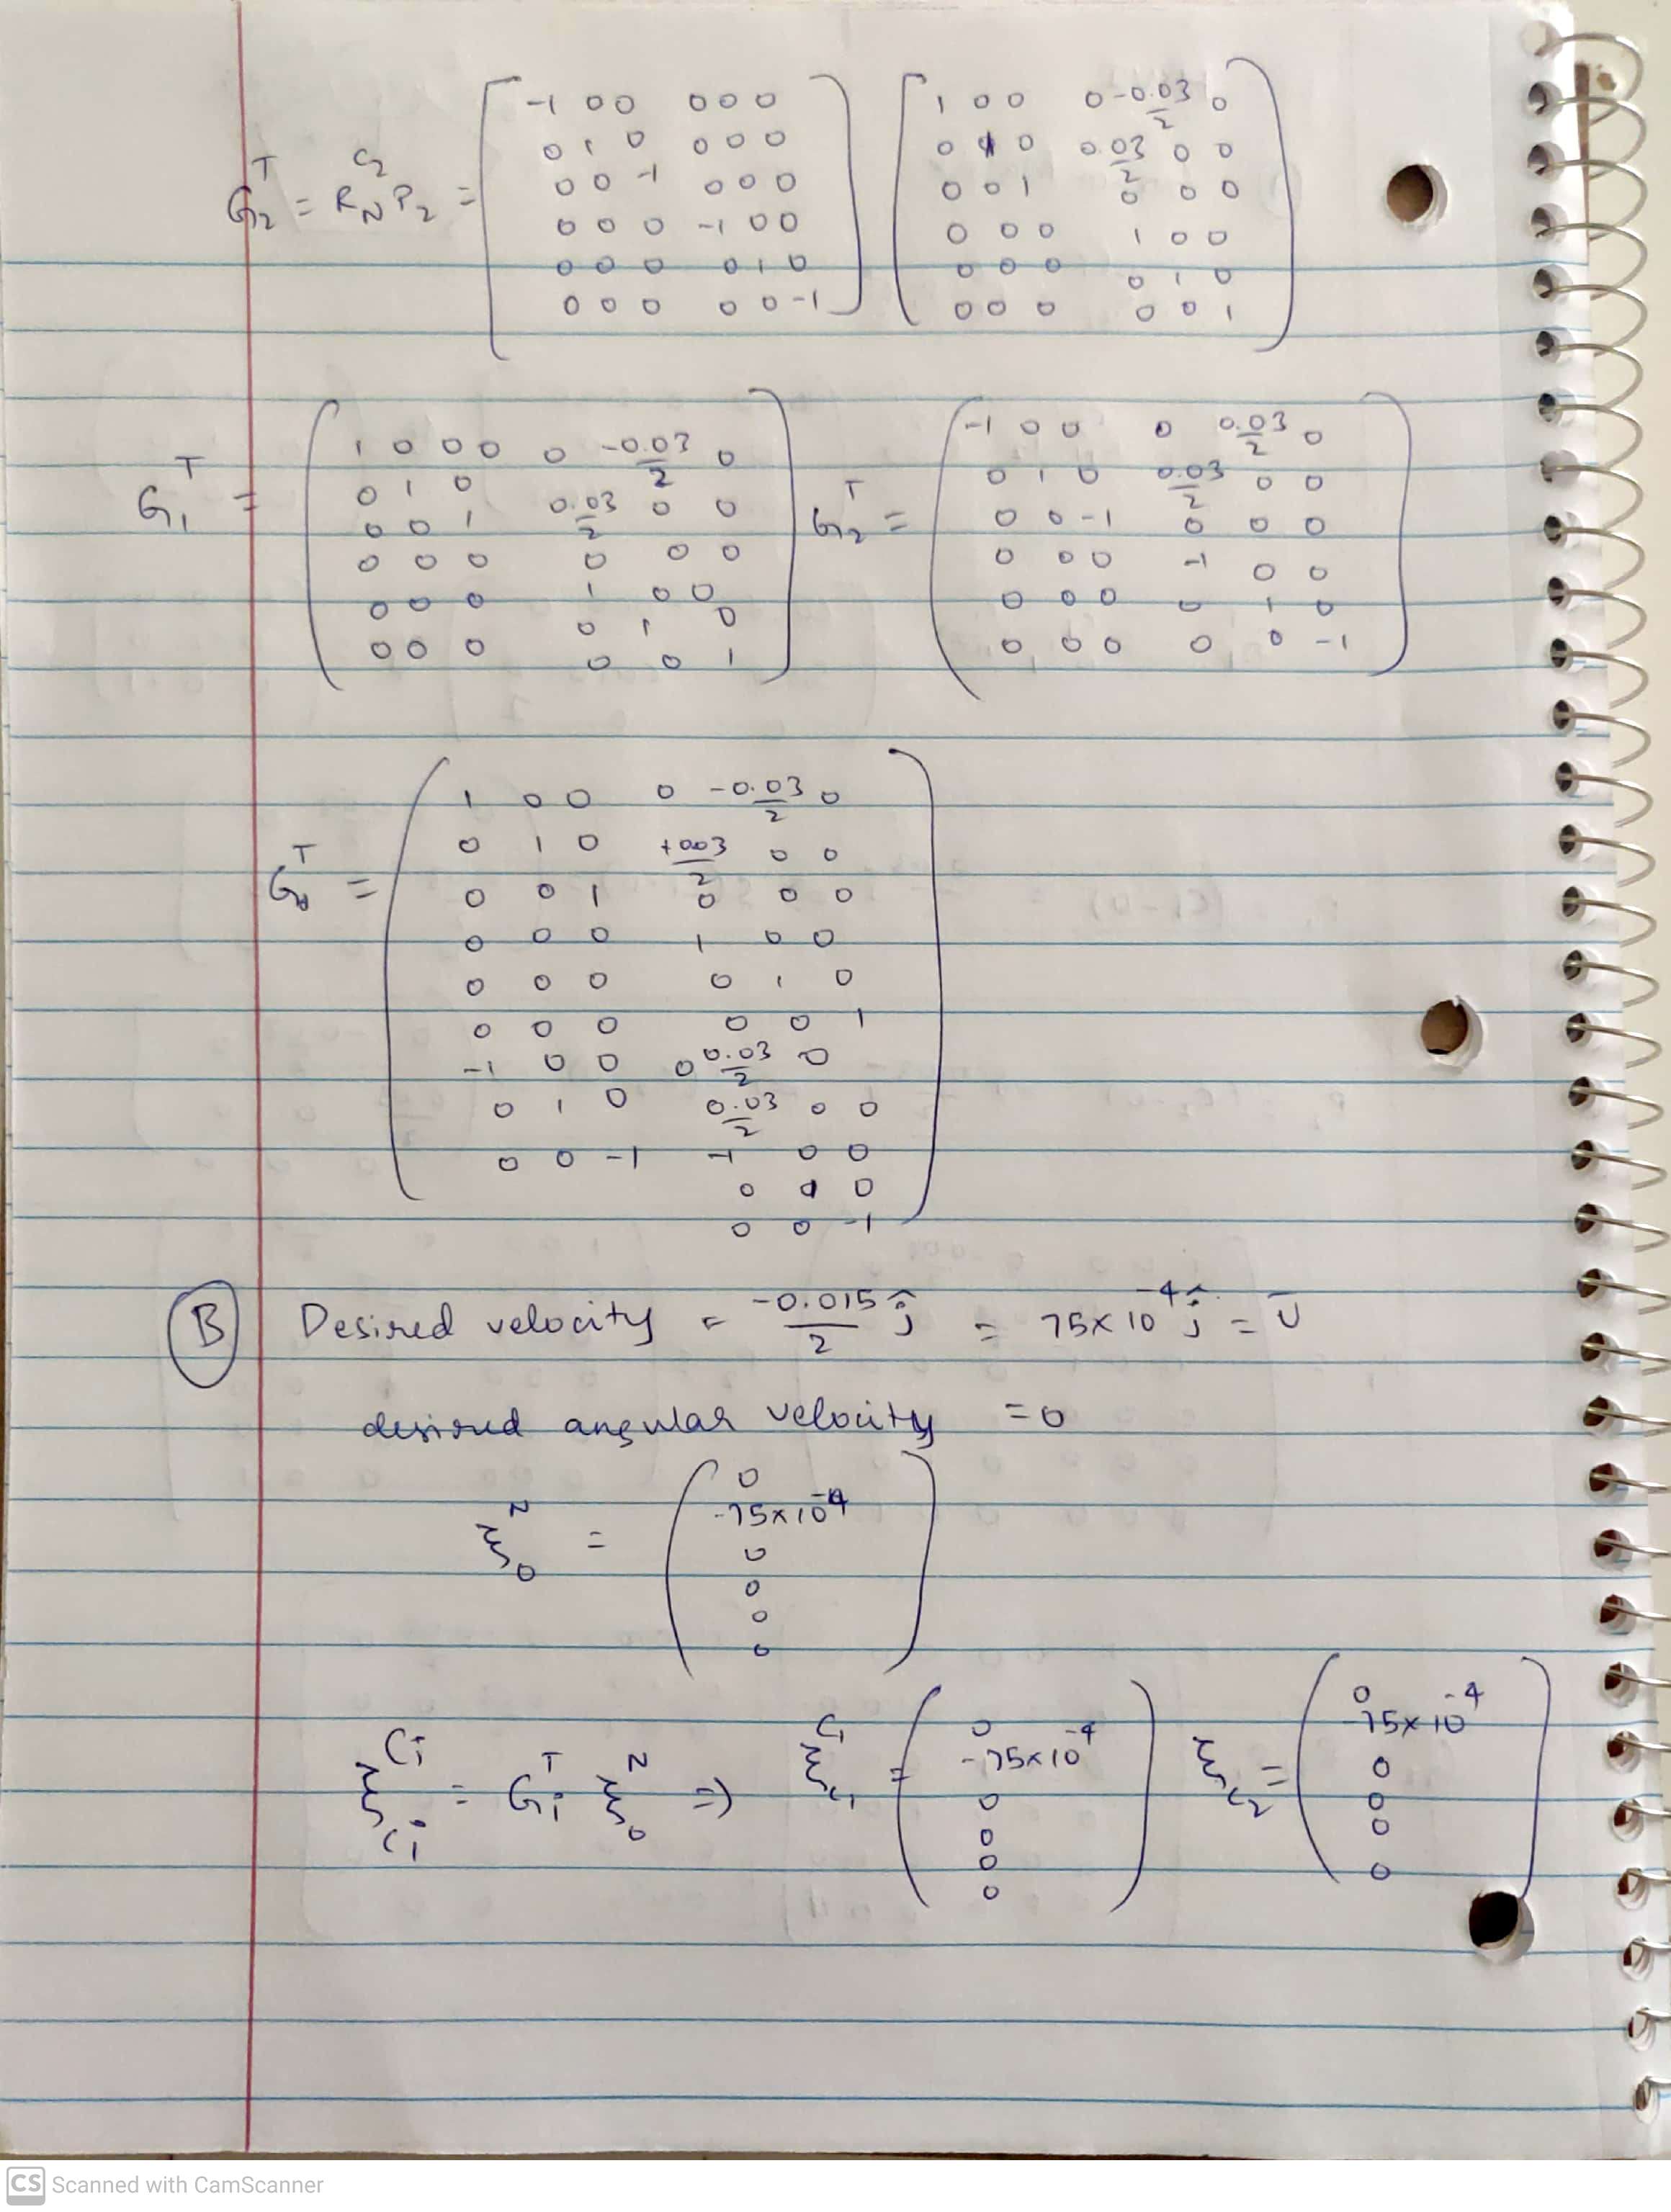 G₂ᵀ = R_N^{C₂} P₂ =
-1 0 0 0 0 0
0 1 0 0 0 0
0 0 -1 0 0 0
0 0 0 -1 0 0
0 0 0 0 1 0
0 0 0 0 0 -1
1 0 0 0 -0.03/2 0
0 1 0 0.03/2 0 0
0 0 1 0 0 0
0 0 0 1 0 0
0 0 0 0 1 0
0 0 0 0 0 1
G₁ᵀ =
1 0 0 0 0 -0.03/2 0
0 1 0 0.03/2 0 0
0 0 1 0 0 0
0 0 0 1 0 0
0 0 0 0 1 0
0 0 0 0 0 1
G₂ᵀ =
-1 0 0 0 0.03/2 0
0 1 0 0.03/2 0 0
0 0 -1 0 0 0
0 0 0 -1 0 0
0 0 0 0 1 0
0 0 0 0 0 -1
Gᵀ =
1 0 0 0 -0.03/2 0
0 1 0 +0.03/2 0 0
0 0 1 0 0 0
0 0 0 1 0 0
0 0 0 0 1 0
0 0 0 0 0 1
-1 0 0 0 0.03/2 0
0 1 0 0.03/2 0 0
0 0 -1 -1 0 0
0 0
0 0 -1
B Desired velocity = -0.015/2 ĵ = 75×10⁻⁴ ĵ = v̄
desired angular velocity = 0
ξ₀ᴺ =
0
-75×10⁻⁴
0
0
0
0
ξ_{Ci}^{Ci} = Gᵢᵀ ξ₀ᴺ ⇒ ξ_{C1}^{C1} =
0
-75×10⁻⁴
0
0
0
0
ξ_{C2} =
0
-75×10⁻⁴
0
0
0
0
CS Scanned with CamScanner